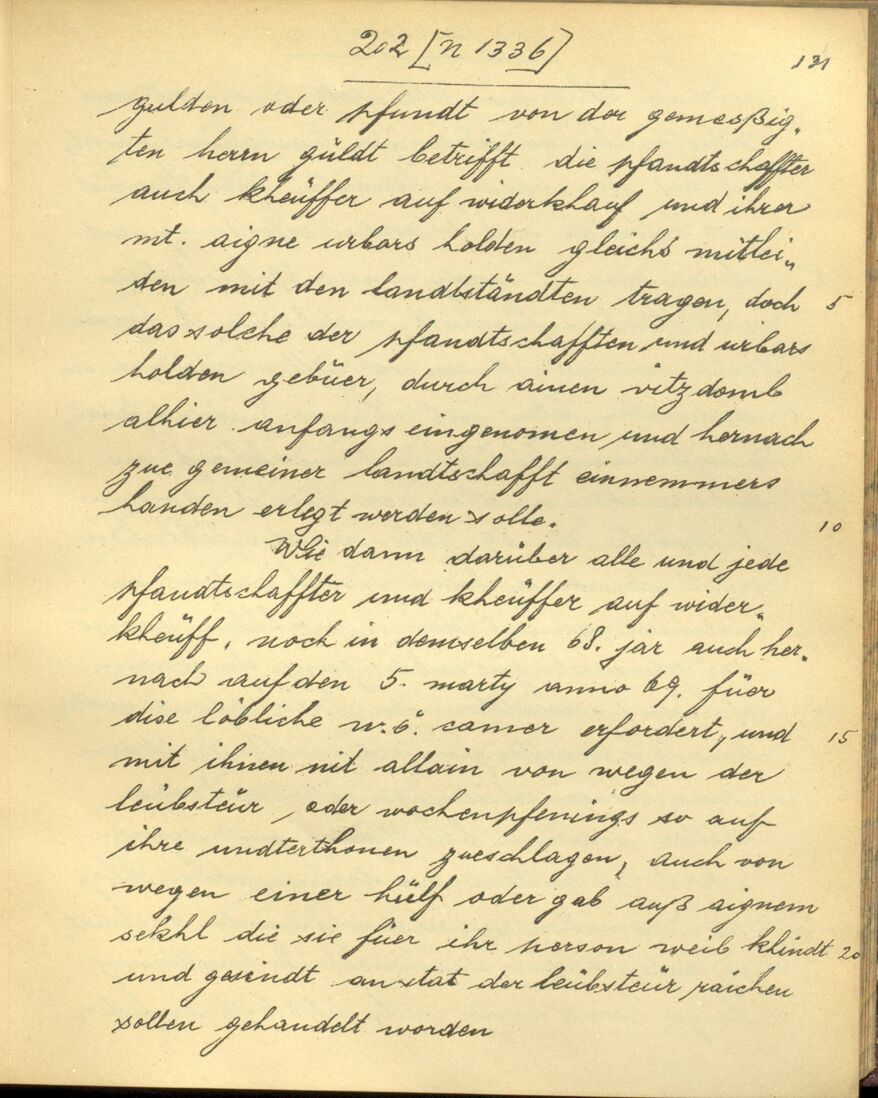 202 [n 1336]
131
gulden oder pfundt von der gemeßig„
ten herrn güldt betrifft die pfandtschaffter
auch kheüffer auf widerkhauf und ihrer
mt. aigne urbars holden gleichs mitlei„
den mit den landtständten tragen, doch 5
das solche der pfandtschafften und urbars
holden gebüer, durch ainen vitzdomb
alhier anfangs eingenomen und hernach
zue gemeiner landtschafft einnemmers
handen erlegt werden solle. 10
Wie dann darüber alle und jede
pfandtschaffter und kheüffer auf wider„
kheüff, noch in demselben 68. jar auch her„
nach auf den 5. marty anno 69. füer
dise löbliche n. ö. camer erfordert, und 15
mit ihnen nit allain von wegen der
leübsteür, oder wochenpfenings so auf
ihre undterthonen zueschlagen, auch von
wegen einer hülf oder gab auß aignem
sekhl die sie füer ihr person weib khindt 20
und gesindt anstat der leübsteür raichen
sollen gehandelt worden